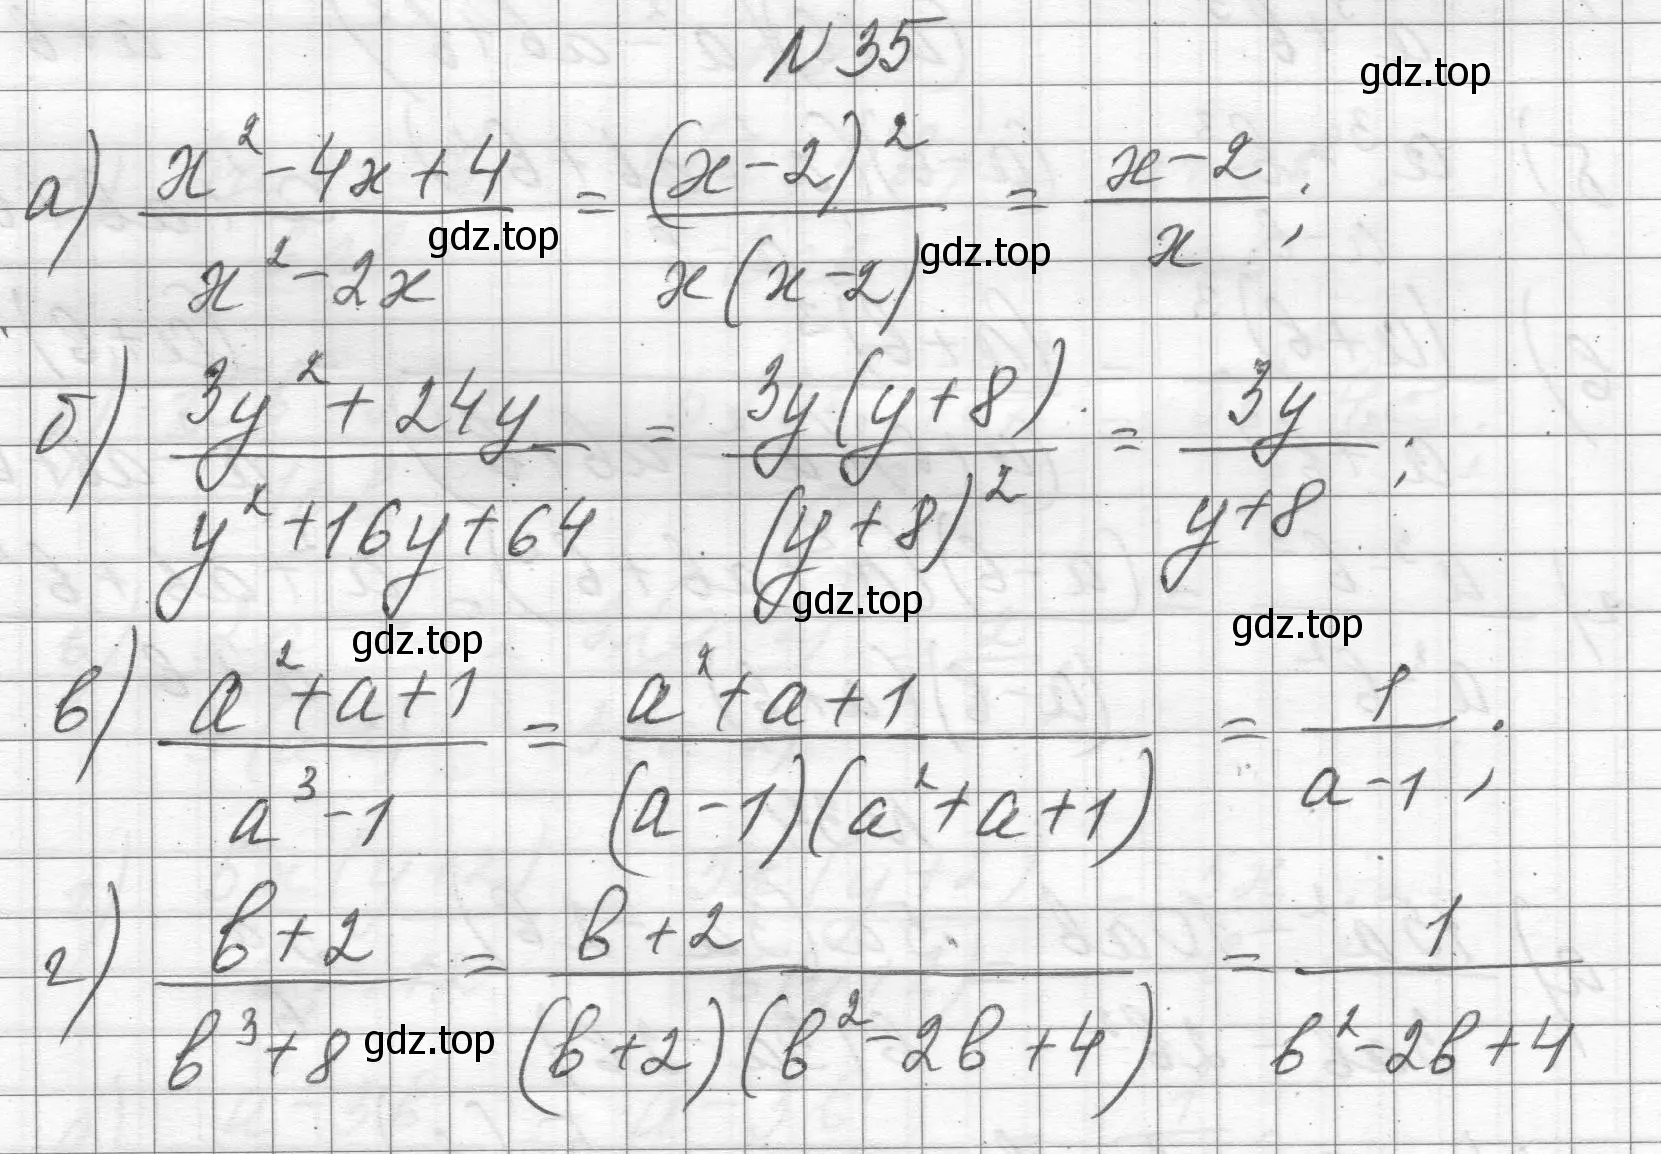 N 35
gdz.top
а) (x² - 4x + 4)/(x² - 2x) = (x - 2)²/(x(x - 2)) = (x - 2)/x ;
gdz.top gdz.top
б) (3y² + 24y)/(y² + 16y + 64) = (3y(y + 8))/((y + 8)²) = 3y/(y + 8) ;
gdz.top gdz.top gdz.top
в) (a² + a + 1)/(a³ - 1) = (a² + a + 1)/((a - 1)(a² + a + 1)) = 1/(a - 1) ;
г) (b + 2)/(b³ + 8) = (b + 2)/((b + 2)(b² - 2b + 4)) = 1/(b² - 2b + 4)
gdz.top